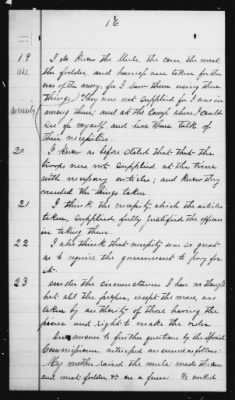 16
19 I do know the Mule, the corn the meat
Use the fodder, and himself were taken for the
use of the army, for I saw them using these
things. They were not supplied for I was in
Necessity among them; and at the Camp where I could
see for myself, and hear them talk of
their necessities.
20 I know as before stated that that the
troops were not supplied at the time
with necessary articles; and know they
needed the things taken
21 I think the necessity which the articles
taken, supplied fully justified the officers
in taking them.
22 I also think that necessity was so great
as to require the government to pay for
it.
23 Under the circumstances I have no thought
but all the property, except the mare, was
taken by authority of those having the
power and right to make the order.
In answer to further questions by the Special
Commissioner witness answered as follows.
My mother raised the mule; made the corn
and meat, fodder &c on a farm. We worked